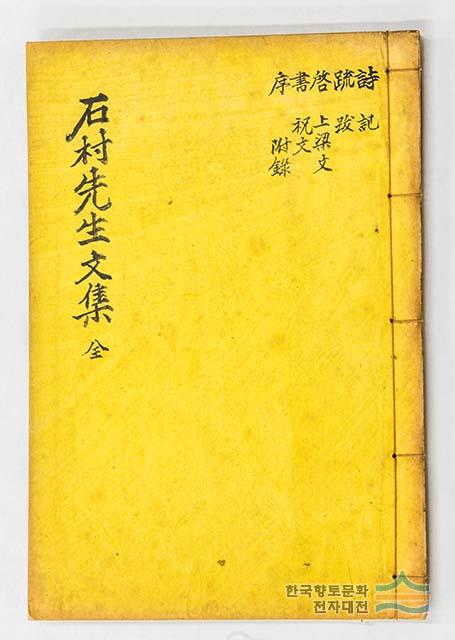 詩 記
疏 跋
啓 上梁文
書 祝文
序 附錄
石村先生文集 全
한국향토문화
전자대전